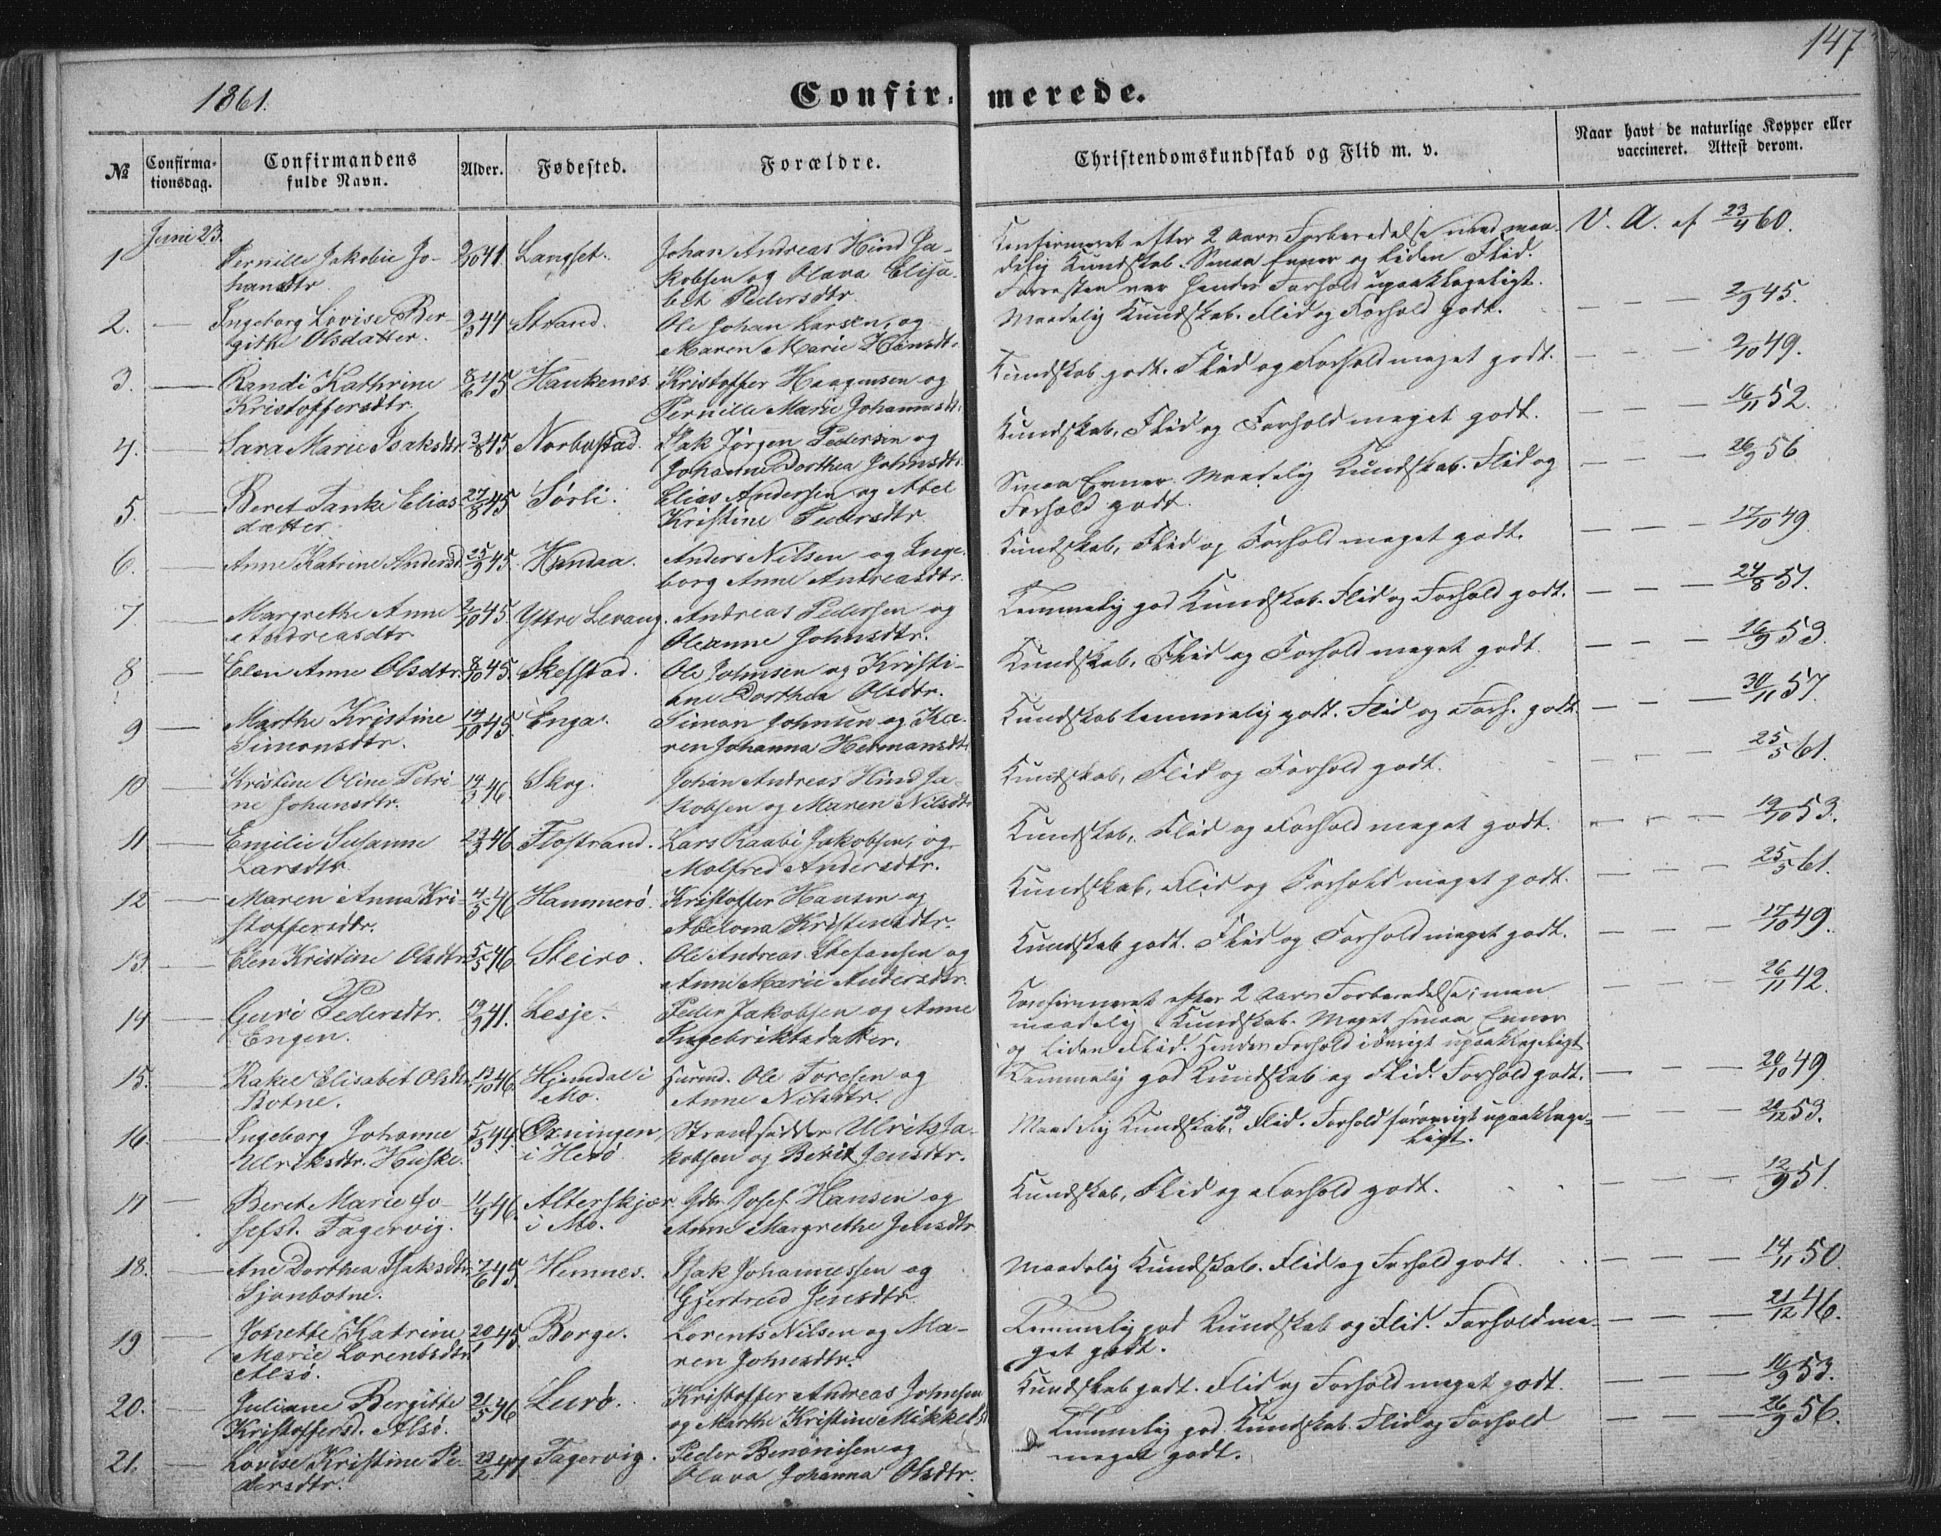 147
1861.
Confirmerede.
№
Confirma-
tionsdag.
Confirmandens
fulde Navn.
Alder.
Fødested.
Forældre.
Christendomskundskab og Flid m. v.
Naar havt de naturlige Kopper eller
vaccineret. Attest derom.
Juni 23.
1 Pernille Jakobie Jo- 41 Langset. Johan Andreas Hind Ja- Konfirmeret efter 2 Aars Forberedelse med maa- V. A. af 23/4 60.
hansdtr kobsen og Olava Elisa- delig Kundskab. Smaa Evner og liden Flid.
bet Pedersdtr. Forresten var hendes Forhold upaaklageligt.
2. — Ingeborg Lovise Ber- 44 Strand. Ole Johan Larsen, og Maadelig Kundskab. Flid og Forhold godt. — — — 2/9 45.
gitte Olsdatter. Maren Marie Hansdtr.
3. — Randi Kathrine 8/6 45 Haukenes. Kristoffer Haagensen og Kundskab godt. Flid og Forhold meget godt. — — — 2/10 49.
Kristoffersdtr. Pernille Marie Johannsdtr.
4. — Sara Marie Isaksdtr. 3/8 45 Norbostad. Isak Jørgen Pedersen og Kundskab, Flid og Forhold meget godt. — — — 16/11 52.
Johanne Dorthea Johnsdtr.
5. — Beret Tanke Elias- 27/8 45 Sørli. Elias Andersen og Abel Smaa Evner. Maadelig Kundskab. Flid og — — — 26/9 56
datter. Kristine Pedersdtr. Forhold godt.
6. — Anne Katrine Andersd. 25/9 45. Hansaa. Anders Nilsen og Inge- Kundskab, Flid og Forhold meget godt. — — — 17/10 49.
borg Anne Andreasdtr.
7 — Margrethe Anne 2/10 45. Yttre Levang. Andreas Pedersen og Temmelig god Kundskab. Flid og Forhold godt. — — — 24/8 51.
Andreasdtr Oleanne Johnsdtr.
8 — Elen Anne Olsdtr. 8/10 45. Skefstad. Ole Johnsen og Kristi- Kundskab, Flid og Forhold meget godt. — — — 16/9 53.
ane Dorthea Olsdtr.
9 — Marthe Kristine 14/10 45. Enga. Simon Johnsen og Ka- Kundskab temmelig godt. Flid og Forh. godt. — — — 30/11 57.
Simonsdtr. ren Johanna Hermansdtr
10 — Kristine Oline Petri- 14/3 46. Skog. Johan Andreas Hind Ja- Kundskab, Flid og Forhold godt. — — 25/5 61.
ne Johansdtr. kobsen og Maren Nilsdtr
11 — Emilie Susanne 23/3 46. Flostrand. Lars Raabi Jakobsen, og Kundskab, Flid og Forhold meget godt. — — — 19/10 53.
Larsdtr. Molfred Andersdtr.
12 — Maren Anna Kri- 4/5 46 Hammerø. Kristoffer Hansen og Kundskab, Flid og Forhold meget godt. — — — 25/5 61.
stoffersdtr. Abelona Kristensdtr.
13 — Elen Kristine Olsdtr 5/5 46. Steiro. Ole Andreas Stefansen og Kundskab godt. Flid og Forhold meget godt. — — — 17/10 49.
Anne Marie Andersdtr.
14 — Guri Pedersdtr. 19/9 41. Lesje. Peder Jakobsen og Anne Konfirmeret efter 2 Aars Forberedelse; men — — — 26/11 42.
Engen. Ingebriktsdatter. maadelig Kundskab. Meget smaa Evner
og liden Flid. Hendes Forhold iøvrigt upaaklageligt.
15. — Rakel Elisabet Olsdtr 13/10 46. Hjemdal i Husmd. Ole Toresen og Temmelig god Kundskab og Flid. Forhold godt. — — — 20/10 49.
Botne. Mo. Anne Nilsdtr.
16. — Ingeborg Johanne 5/3 44. Oxningen, Strandsidder Ulrik Ja- Maadelig Kundskab og Flid. Forhold forøvrigt upaaklage- — — — 20/12 53.
Ulriksdtr. Huske. i Herø. kobsen og Berit Jensdtr. ligt.
17 — Beret Marie Jo- 11/9 46. Alterskjær Gdbr. Josef Hansen og Kundskab, Flid og Forhold godt. 12/9 51.
sefsd. Fagervig. i Mo. Anne Margrethe Jensdtr
18. — Ane Dorthea Isaksdtr. 7/6 45. Hemnes. Isak Johannessen og Maadelig Kundskab. Flid og Forhold godt. — — — 14/11 50.
Sjonbotne. Gjertrud Jensdtr
19 Johette Katrine 20/1 45. Borge. Lorents Nilsen og Ma- Temmelig god Kundskab og Flid. Forhold me- — — — 21/12 46.
Marie Lorentsdtr. ren Johnsdtr. get godt.
Alsø.
20. — Juliane Bergitte 21/5 46 Lurø. Kristoffer Andreas Johnsen Kundskab godt. Flid og Forhold meget godt. — — — 16/9 53.
Kristoffersd. Alsø. og Marthe Kristine Mikkelsd.
21. — Lovise Kristine Pe- Fagervig. Peder Benonisen og Temmelig god Kundskab. Flid og Forhold — — — 26/9 56.
dersdtr. Olava Johanna Olsdtr. meget godt.